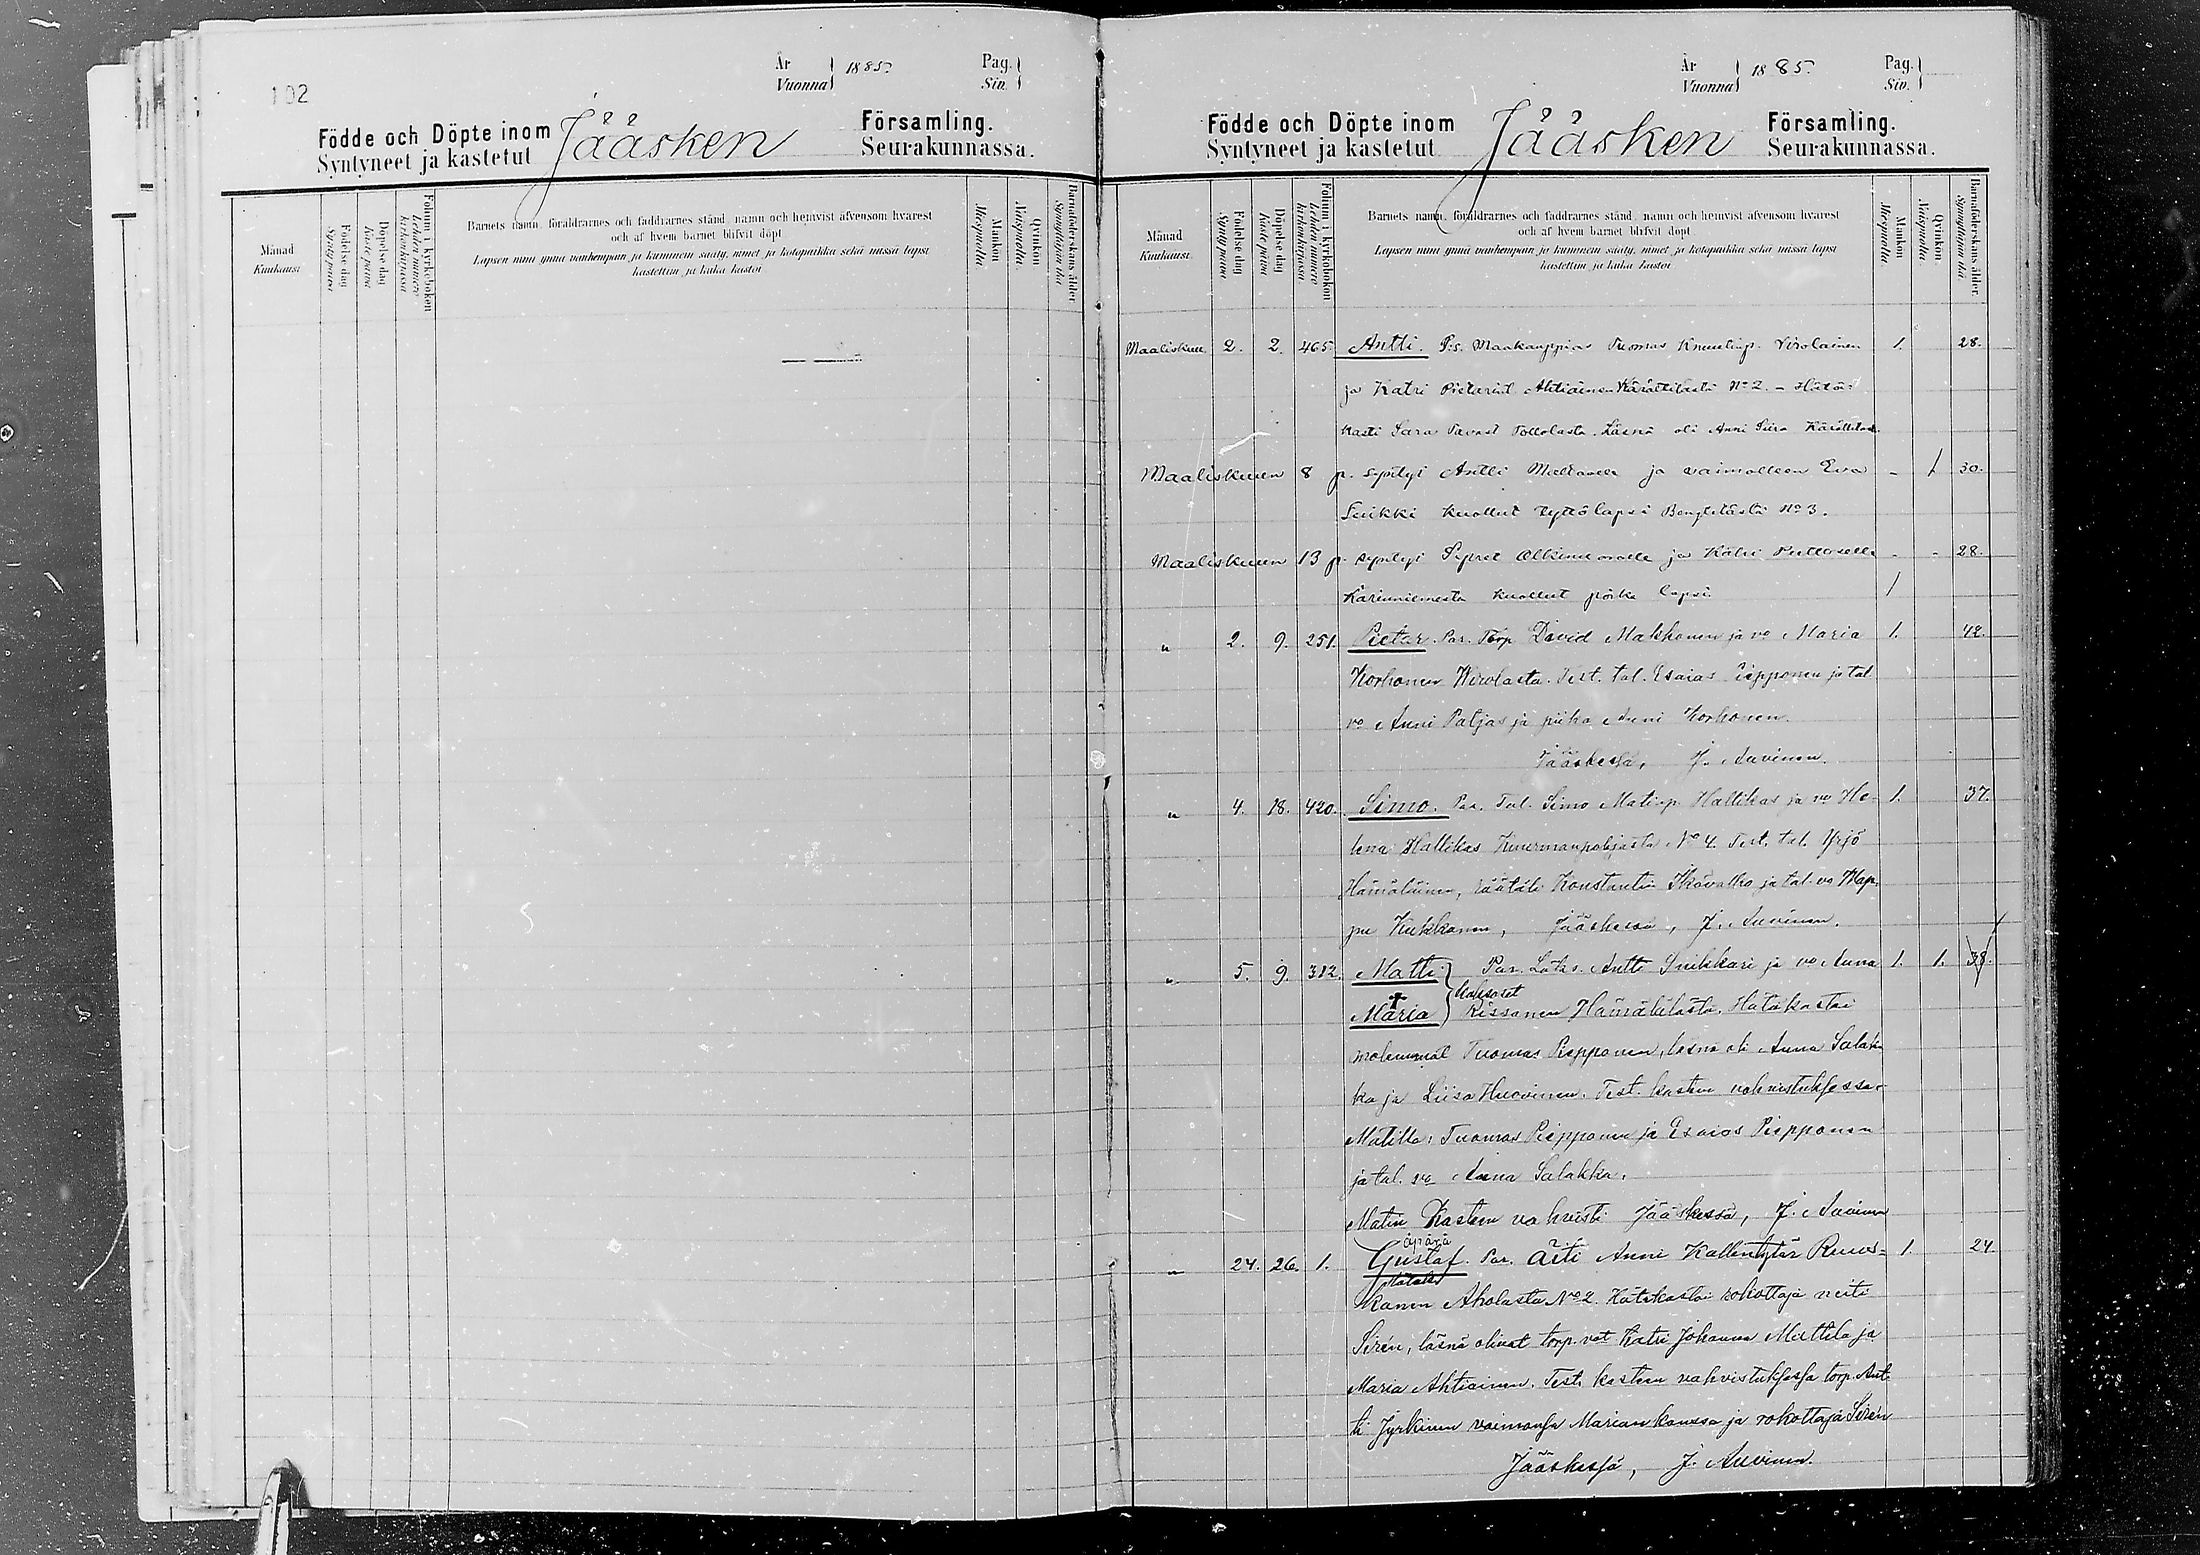 102
År
Vuonna 1885.
Pag.
Siv.
Födde och Döpte inom Jääsken Församling.
Syntyneet ja kastetut Seurakunnassa.
Månad
Kuukausi
Födelse dag
Synty päivä
Döpelse dag
Kaste päivä
Folium i kyrkoboken
Lehden numero kirkonkirjassa
Barnets namn, föräldrarnes och faddrarnes stånd, namn och hemvist äfvensom hvarest
och af hvem barnet blifvit döpt
Lapsen nimi ynnä vanhempain ja kummein sääty, nimet ja kotopaikka sekä missä lapsi
kastettiin ja kuka kastoi
Mankön
Miespuolta
Qvinkön
Naispuolta
Barnaföderskans ålder
Synnyttäjän ikä
År
Vuonna 1885.
Pag.
Siv.
Födde och Döpte inom Jääsken Församling.
Syntyneet ja kastetut Seurakunnassa.
Månad
Kuukausi
Födelse dag
Synty päivä
Döpelse dag
Kaste päivä
Folium i kyrkoboken
Lehden numero kirkonkirjassa
Barnets namn, föräldrarnes och faddrarnes stånd, namn och hemvist äfvensom hvarest
och af hvem barnet blifvit döpt
Lapsen nimi ynnä vanhempain ja kummein sääty, nimet ja kotopaikka sekä missä lapsi
kastettiin ja kuka kastoi
Mankön
Miespuolta
Qvinkön
Naispuolta
Barnaföderskans ålder.
Synnyttäjän ikä
Maaliskuu 2. 2. 465 Antti. Maakauppias Tuomas Virolainen 1. 28.
ja Katri Ahtiainen Kärättilästä No 2. - Hätä
kasti Sara Tavast Tollolasta. Läsnä oli Anni
Maaliskuun 8 p. syntyi Antti ja vaimolleen Eva - 1 30.
kuollut tyttölapsi No 3.
Maaliskuun 13 p. syntyi ja Katri - - 28.
kuollut poika lapsi 1
" 2. 9. 251. Pietar. Par. Torp David Makkonen ja vo Maria 1. 42.
Korhonen Kirolasta. Test. tal. Esaias Piipponen ja tal.
vo Anni Patjas ja piika Anni Korhonen.
Jääskessä, J. Auvinen.
" 4. 18. 420. Simo. Par. Tal. Simo Matinp. Hallikas ja vo He- 1. 37.
lena Hallikas Kuurmanpohjasta No 4. Test. tal. Yrjö
Hämäläinen, räätäli Konstantin Ikävalko ja tal. vo Map-
pu Kukkonen, Jääskessä, J. Auvinen.
" 5. 9. 312. Matti Par. Antti Snikkari ja vo Anna 1. 1. 38.
Kaksoset
† Maria Kissanen Hämäliläistä. Hätäkastoi
molemmat Tuomas Piipponen, läsnä oli Anna Salak-
ka ja Liisa Huovinen. Test. kasteen vahvistuksessa
Matilla: Tuomas Piipponen ja Esaias Piipponen
ja tal. vo Anna Salakka.
Matin kasteen vahvisti Jääskessä, J. Auvinen
äpärä
" 24. 26. 1. Gustaf. Par. Äiti Anni Kallentytär Ruus- 1. 24.
kanen Aholasta No 2. Hätäkastoi rokottaja neiti
Sirén, läsnä olivat torp. vot Katri Johanna Mattila ja
Maria Ahtiainen. Test. kasteen vahvistuksessa torp. Ant-
ti Jyrkinen vaimonsa Marian kanssa ja rokottaja Sirén
Jääskessä, J. Auvinen.